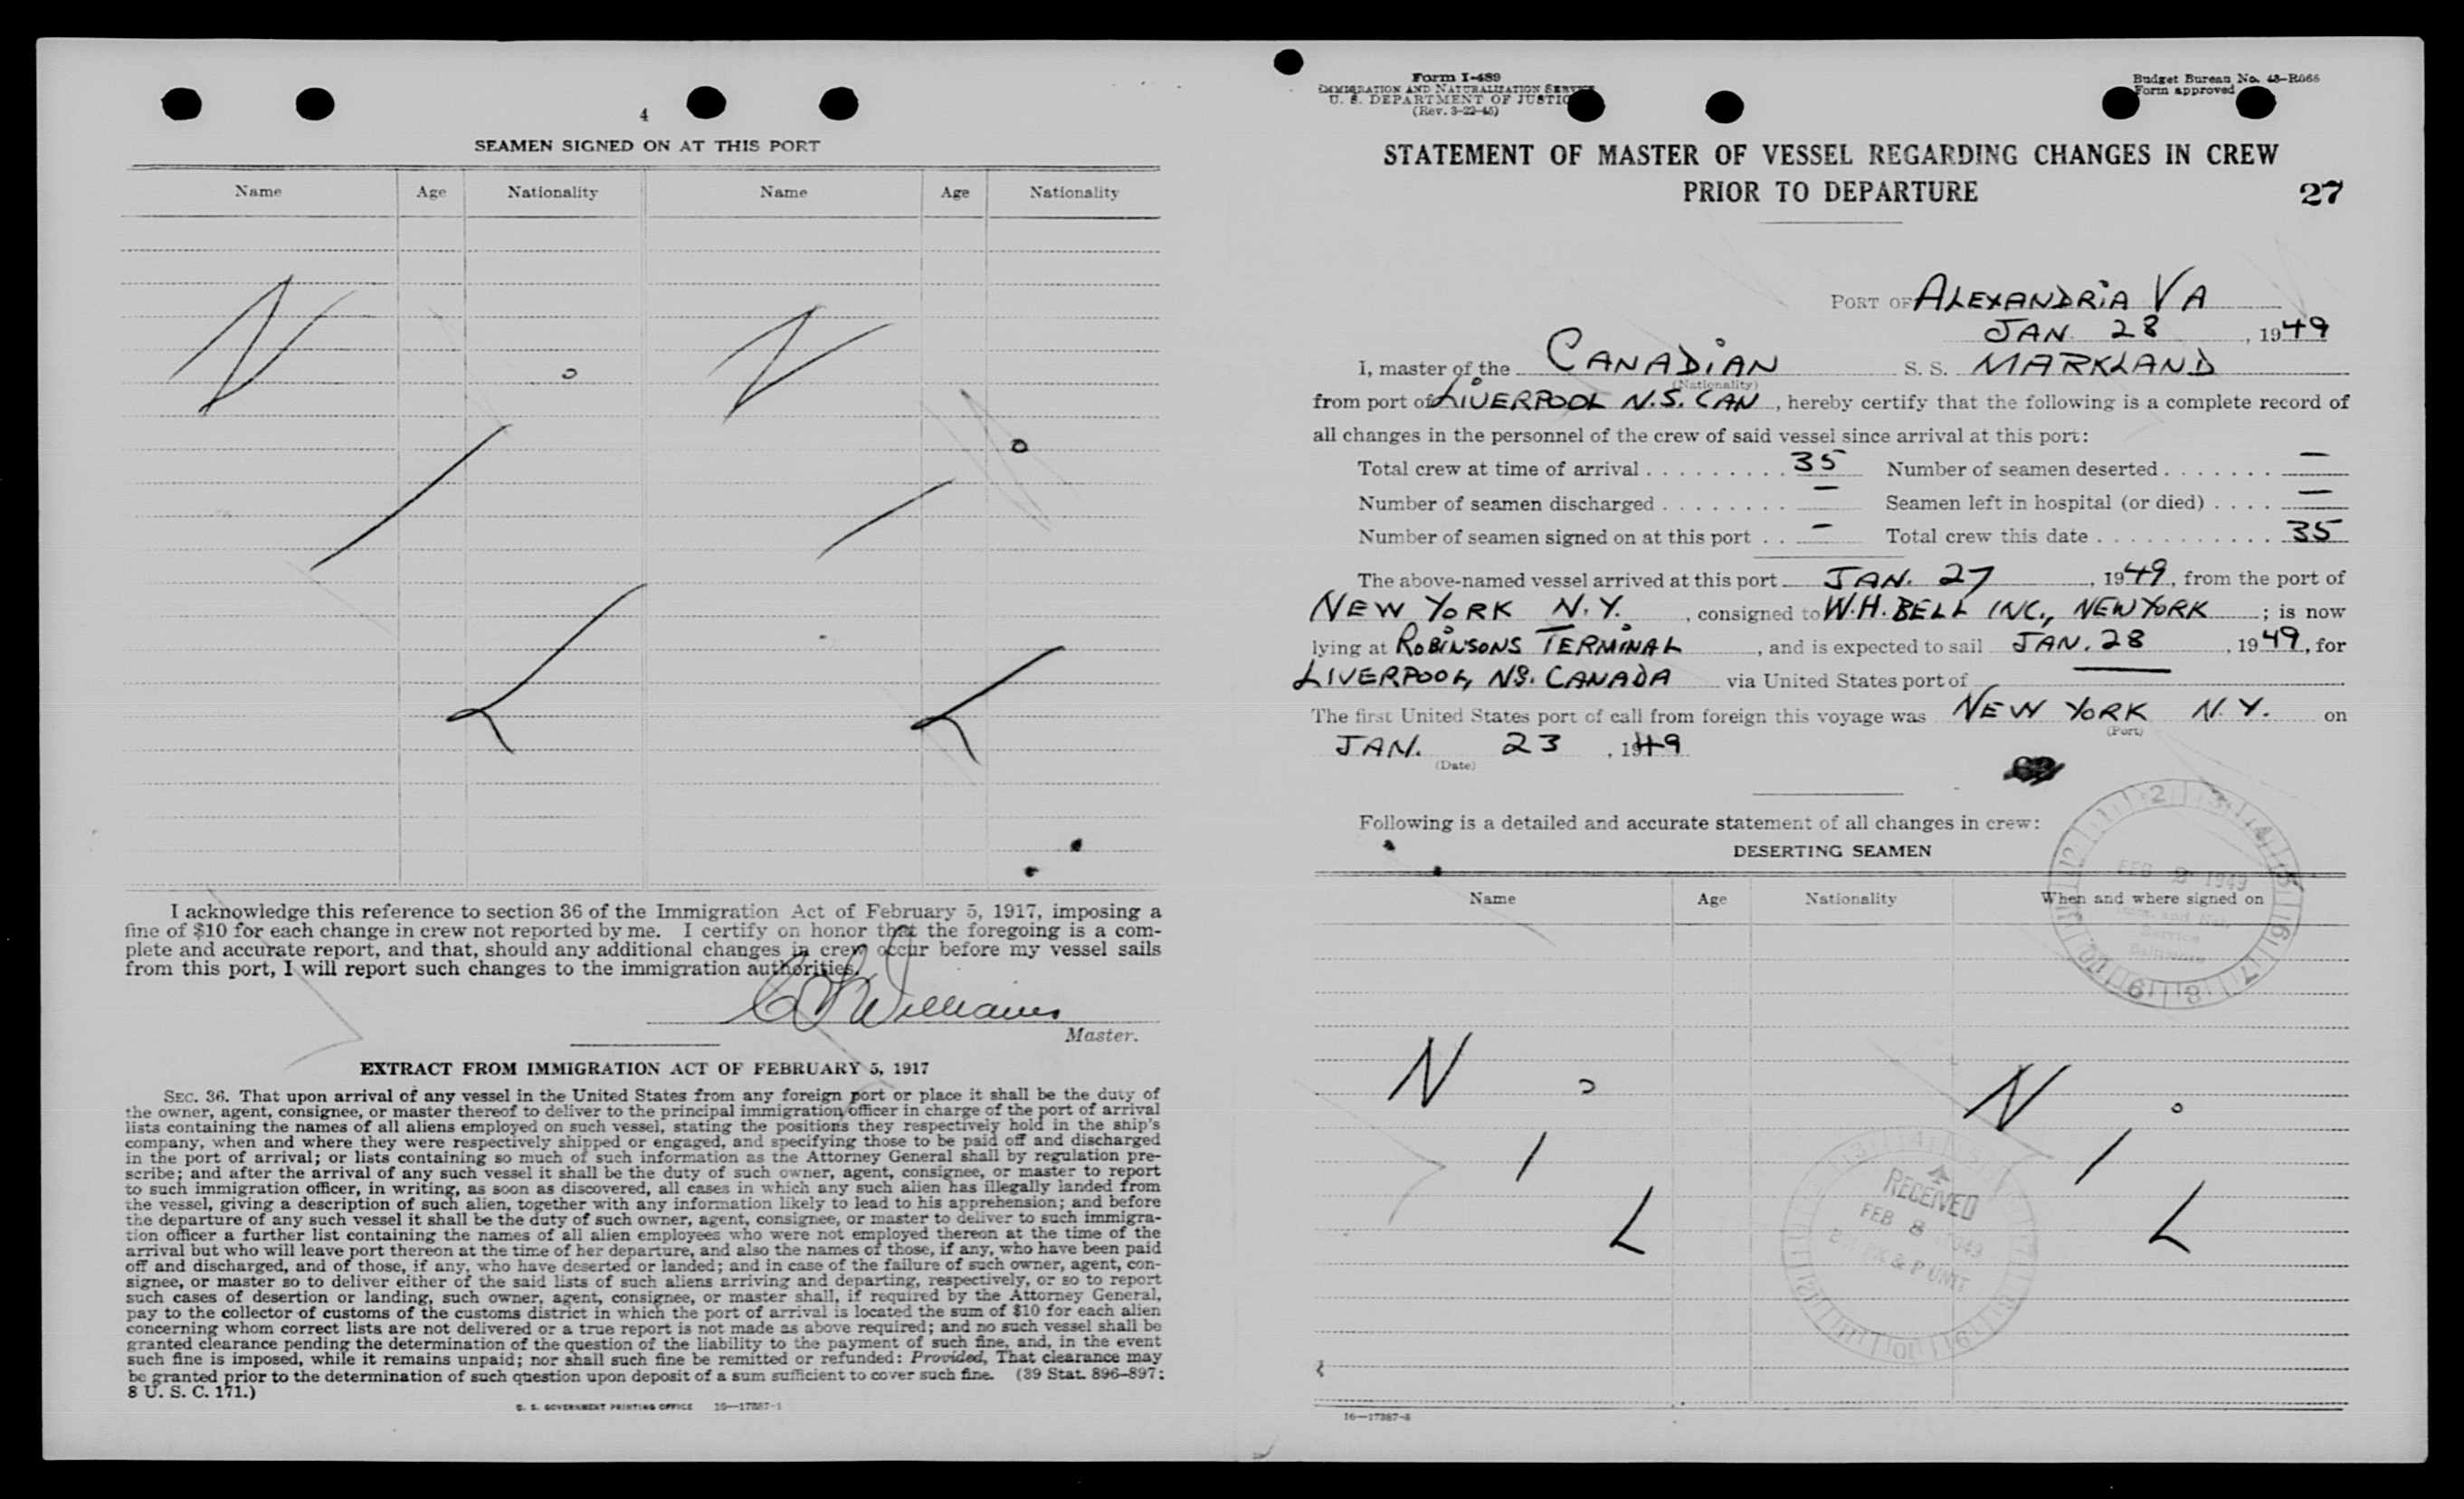 4
SEAMEN SIGNED ON AT THIS PORT
Name Age Nationality Name Age Nationality
N o N
/ o
/
L L
I acknowledge this reference to section 36 of the Immigration Act of February 5, 1917, imposing a
fine of $10 for each change in crew not reported by me. I certify on honor that the foregoing is a com-
plete and accurate report, and that, should any additional changes in crew occur before my vessel sails
from this port, I will report such changes to the immigration authorities.
Williams
Master.
EXTRACT FROM IMMIGRATION ACT OF FEBRUARY 5, 1917
SEC. 36. That upon arrival of any vessel in the United States from any foreign port or place it shall be the duty of
the owner, agent, consignee, or master thereof to deliver to the principal immigration officer in charge of the port of arrival
lists containing the names of all aliens employed on such vessel, stating the positions they respectively hold in the ship's
company, when and where they were respectively shipped or engaged, and specifying those to be paid off and discharged
in the port of arrival; or lists containing so much of such information as the Attorney General shall by regulation pre-
scribe; and after the arrival of any such vessel it shall be the duty of such owner, agent, consignee, or master to report
to such immigration officer, in writing, as soon as discovered, all cases in which any such alien has illegally landed from
the vessel, giving a description of such alien, together with any information likely to lead to his apprehension; and before
the departure of any such vessel it shall be the duty of such owner, agent, consignee, or master to deliver to such immigra-
tion officer a further list containing the names of all alien employees who were not employed thereon at the time of the
arrival but who will leave port thereon at the time of her departure, and also the names of those, if any, who have been paid
off and discharged, and of those, if any, who have deserted or landed; and in case of the failure of such owner, agent, con-
signee, or master so to deliver either of the said lists of such aliens arriving and departing, respectively, or so to report
such cases of desertion or landing, such owner, agent, consignee, or master shall, if required by the Attorney General,
pay to the collector of customs of the customs district in which the port of arrival is located the sum of $10 for each alien
concerning whom correct lists are not delivered or a true report is not made as above required; and no such vessel shall be
granted clearance pending the determination of the question of the liability to the payment of such fine, and, in the event
such fine is imposed, while it remains unpaid; nor shall such fine be remitted or refunded: Provided, That clearance may
be granted prior to the determination of such question upon deposit of a sum sufficient to cover such fine. (39 Stat. 896-897;
8 U. S. C. 171.)
U. S. GOVERNMENT PRINTING OFFICE 16—17387-1
Form I-489
IMMIGRATION AND NATURALIZATION SERVICE
U. S. DEPARTMENT OF JUSTICE
(Rev. 3-22-45)
Budget Bureau No. 43-R066
Form approved
STATEMENT OF MASTER OF VESSEL REGARDING CHANGES IN CREW
PRIOR TO DEPARTURE
27
PORT OF ALEXANDRIA VA
JAN. 28, 1949
I, master of the CANADIAN S. S. MARKLAND
(Nationality)
from port of LIVERPOOL N.S. CAN, hereby certify that the following is a complete record of
all changes in the personnel of the crew of said vessel since arrival at this port:
Total crew at time of arrival . . . . . . . . . 35 Number of seamen deserted . . . . . . . —
Number of seamen discharged . . . . . . . . — Seamen left in hospital (or died) . . . . —
Number of seamen signed on at this port . . — Total crew this date . . . . . . . . . . . . 35
The above-named vessel arrived at this port JAN. 27, 1949, from the port of
NEW YORK N.Y., consigned to W.H. BELL INC., NEW YORK; is now
lying at ROBINSONS TERMINAL, and is expected to sail JAN. 28, 1949, for
LIVERPOOL, NS. CANADA via United States port of —
The first United States port of call from foreign this voyage was NEW YORK N.Y. on
(Port)
JAN. 23, 1949
(Date)
Following is a detailed and accurate statement of all changes in crew:
DESERTING SEAMEN
Name Age Nationality When and where signed on
FEB 1949
N o N o
I I
L L
RECEIVED
FEB 8 1949
& P UNIT
16—17387-3